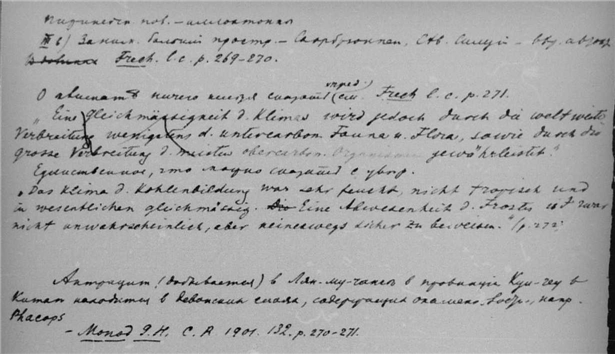 III б) Заним. большой простр. – Саарбрюккен,
Frech. l. c. p. 269–270.
О климате ничего нельзя сказать (см. Frech l. c. p. 271.
„Eine gleichmässigkeit d. Klimas wird jedoch durch die weltweite
Verbreitung wenigstens d. untercarbon Fauna u. Flora, sowie durch die
grosse Verbreitung d. meisten obercarbon. Organismen gewährleistet."
Единственное, что можно сказать с увер.
„Das Klima d. Kohlenbildung war sehr feucht, nicht tropisch und
im wesentlichen gleichmässig. Eine Abwesenheit d. Frostes ist zwar
nicht unwahrscheinlich, aber keineswegs sicher zu beweisen." (p. 272)
Антрацит (добывается) в в провинции Куи-чеу в
Китае находится в девонских слоях, содержащих окамен. напр.
Phacops
– Monod G.H. C. R. 1901. 132. p. 270–271.